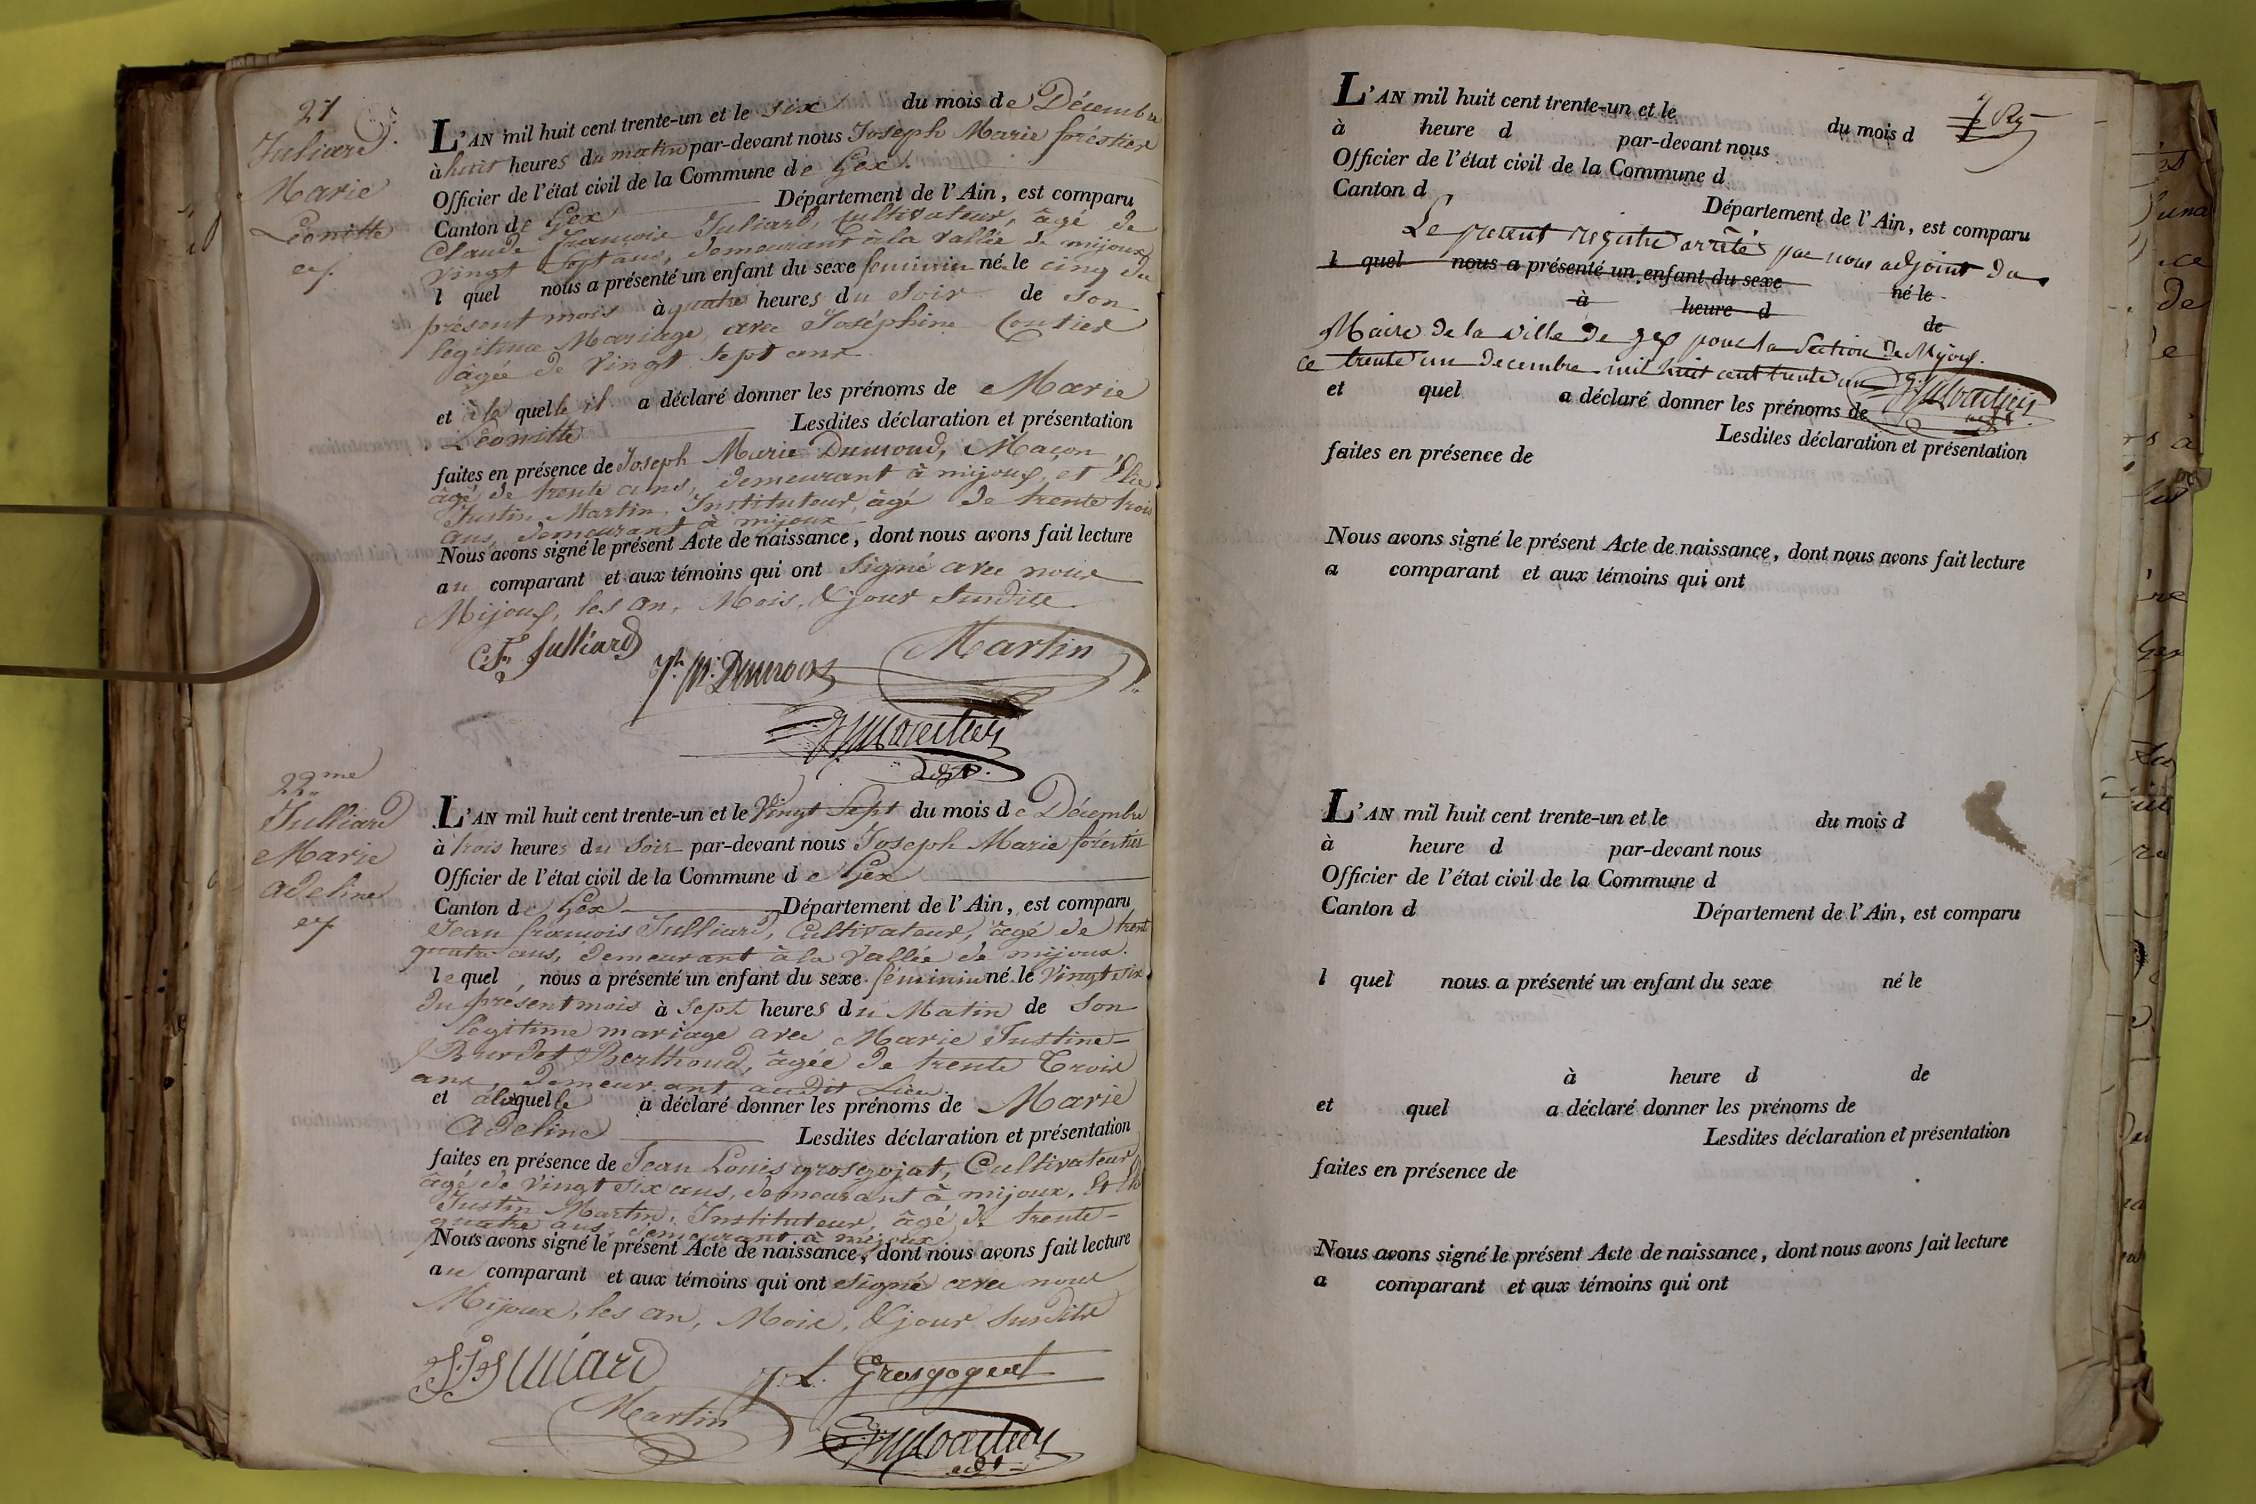 21
Juliard
Marie
Léonille
L'AN mil huit cent trente-un et le six du mois de Décembre
à huit heures du matin par-devant nous Joseph Marie foréstier
Officier de l'état civil de la Commune de Gex.
Canton de Gex Département de l'Ain, est comparu
Claude françois Juliard, Cultivateur, âgé de
vingt Sept ans, demeurant à la vallée de mijoux
l quel nous a présenté un enfant du sexe feminin né le cinq du
présent mois à quatre heures du Soir de son
légitime Mariage, avec Joséphine
âgée de vingt Sept ans
et à la quelle il a déclaré donner les prénoms de Marie
Léonille Lesdites déclaration et présentation
faites en présence de Joseph Marie Dumond, Maçon,
âgé de trente ans, demeurant à mijoux, et Elie
Justin Martin, Instituteur, âgé de trente trois
ans, demeurant à mijoux
Nous avons signé le présent Acte de naissance, dont nous avons fait lecture
au comparant et aux témoins qui ont Signé avec nous
Mijoux, les an, Mois, & jour Susdits.
C. F. Julliard
Martin
adjt.
22me
Julliard
Marie
adeline
L'AN mil huit cent trente-un et le Vingt Sept du mois de Décembre
à trois heures du Soir par-devant nous Joseph Marie foréstier
Officier de l'état civil de la Commune de Gex
Canton de Gex Département de l'Ain, est comparu
Jean françois Julliard, Cultivateur, âgé de trente
quatre ans, demeurant à la Vallée de mijoux.
le quel, nous a présenté un enfant du sexe féminin né le Vingt six
du présent mois à Sept heures du Matin de Son
légitime mariage avec Marie Justine
Burdet Berthoud, âgée de trente Trois
ans, demeurant audit Lieu.
et à laquelle a déclaré donner les prénoms de Marie
Adeline Lesdites déclaration et présentation
faites en présence de Jean Louis grosgojat, Cultivateur,
âgé de vingt six ans, demeurant à mijoux. Et Elie
Justin Martin, Instituteur, âgé de trente
quatre ans, demeurant à mijoux.
Nous avons signé le présent Acte de naissance, dont nous avons fait lecture
au comparant et aux témoins qui ont Signé avec nous
Mijoux, les an, Mois, & jour Susdits
J. L. Grosgogeat
Martin
adjt
L'AN mil huit cent trente-un et le du mois d
à heure d par-devant nous
Officier de l'état civil de la Commune d
Canton d Département de l'Ain, est comparu
Le présent registre arrêté par nous adjoint du
l quel nous a présenté un enfant du sexe né le
à heure d de
Maire de la ville de gex pour la Section de Mijoux.
ce trente un decembre mil huit cent trente un
et quel a déclaré donner les prénoms de
adjt.
Lesdites déclaration et présentation
faites en présence de
Nous avons signé le présent Acte de naissance, dont nous avons fait lecture
a comparant et aux témoins qui ont
L'AN mil huit cent trente-un et le du mois d
à heure d par-devant nous
Officier de l'état civil de la Commune d
Canton d Département de l'Ain, est comparu
l quel nous a présenté un enfant du sexe né le
à heure d de
et quel a déclaré donner les prénoms de
Lesdites déclaration et présentation
faites en présence de
Nous avons signé le présent Acte de naissance, dont nous avons fait lecture
a comparant et aux témoins qui ont